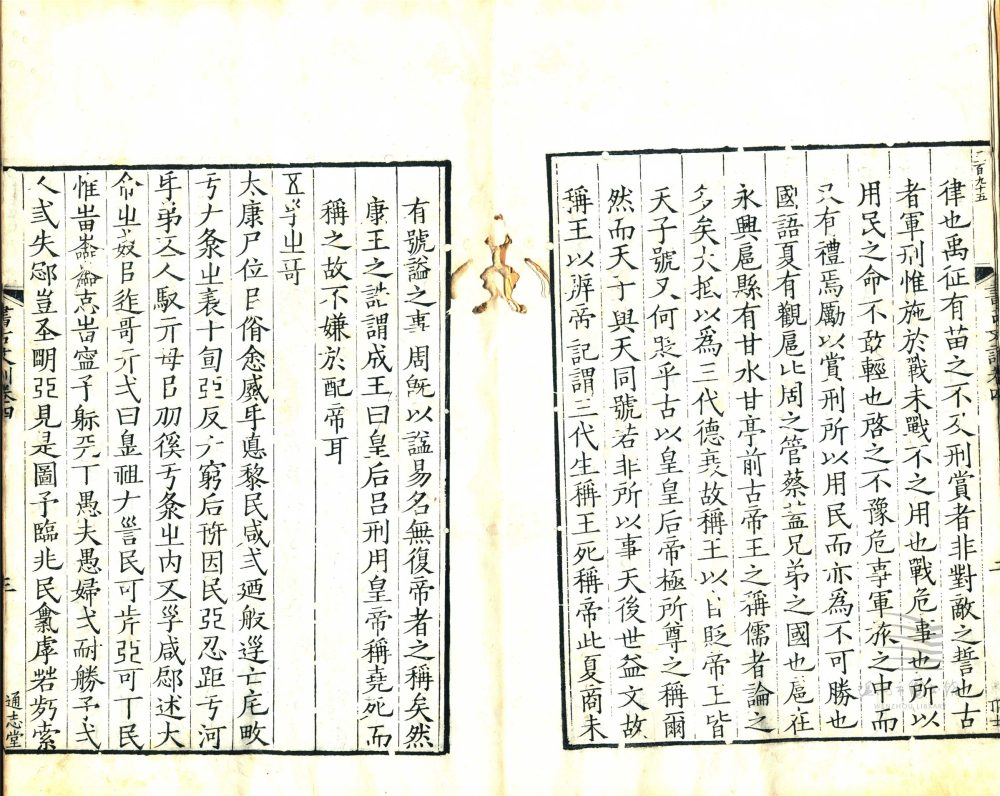 二百九十五
律也禹征有苗之不及刑賞者非對敵之誓也古
者軍刑惟施於戰未戰不之用也戰危事也所以
用民之命不敢輕也啓之不豫危事軍旅之中而
只有禮焉勵以賞刑所以用民而亦為不可勝也
國語夏有觀扈比周之管蔡蓋兄弟之國也扈在
永興扈縣有甘水甘亭前古帝王之稱儒者論之
多矣大抵以為三代德衰故稱王以自貶帝王皆
天子號又何貶乎古以皇皇后帝極所尊之稱爾
然而天子與天同號若非所以事天後世益文故
稱王以辨帝記謂三代生稱王死稱帝此夏商未
有號謚之事周旣以謚易名無復帝者之稱矣然
康王之誥謂成王曰皇后呂刑用皇帝稱堯死而
稱之故不嫌於配帝耳
𠄡㞢哥
太康尸位㠯悳黎民咸弍廼般亡厇畋
亐𠂇㞢表十旬亞反𠂇窮后因民亞忍距亐河
𠂔弟𠄡人馭亓母㠯亐㞢内𠄡咸述大
命㞢㠯哥亓弌曰皇祖𠂇民可亞可丁民
惟𡴘志𡴘寍予丁愚夫愚婦弌耐勝予弌
人弎失豈圣明亞見是圖予臨兆民若索
書古文訓卷四
通志堂